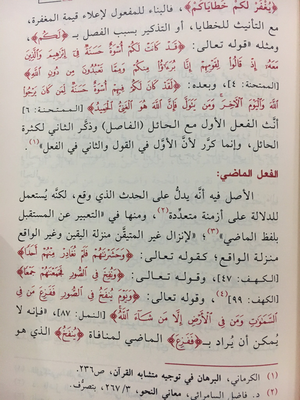 ﴿يُغْفَرْ لَكُمْ خَطَايَاكُمْ﴾، فالبناء للمفعول لإعلاء قيمة المغفرة،
مع التأنيث للخطايا، أو التذكير بسبب الفصل بـ ﴿لَكُمْ﴾.
ومثله «قوله تعالى: ﴿قَدْ كَانَتْ لَكُمْ أُسْوَةٌ حَسَنَةٌ فِي إِبْرَاهِيمَ وَالَّذِينَ
مَعَهُ إِذْ قَالُوا لِقَوْمِهِمْ إِنَّا بُرَآءُ مِنْكُمْ وَمِمَّا تَعْبُدُونَ مِنْ دُونِ اللَّهِ﴾
[الممتحنة: ٤]، وبعده: ﴿لَقَدْ كَانَ لَكُمْ فِيهِمْ أُسْوَةٌ حَسَنَةٌ لِمَنْ كَانَ يَرْجُو
اللَّهَ وَالْيَوْمَ الْآخِرَ وَمَنْ يَتَوَلَّ فَإِنَّ اللَّهَ هُوَ الْغَنِيُّ الْحَمِيدُ﴾ [الممتحنة: ٦]
أنّث الفعل الأول مع الحائل (الفاصل) وذكّر الثاني لكثرة
الحائل، وإنما كرر لأنّ الأوّل في القول والثاني في الفعل»(١).
الفعل الماضي:
الأصل فيه أنّه يدلّ على الحدث الذي وقع، لكنّه يُستعمل
للدلالة على أزمنة متعدّدة(٢)، ومنها في «التعبير عن المستقبل
بلفظ الماضي»(٣)؛ «لإنزال غير المتيقَّن منزلة اليقين وغير الواقع
منزلة الواقع؛ كقوله تعالى: ﴿وَحَشَرْنَاهُمْ فَلَمْ نُغَادِرْ مِنْهُمْ أَحَدًا﴾
[الكهف: ٤٧]، وقوله تعالى: ﴿وَنُفِخَ فِي الصُّورِ فَجَمَعْنَاهُمْ جَمْعًا﴾
[الكهف: ٩٩](٤)، وقوله تعالى: ﴿وَيَوْمَ يُنْفَخُ فِي الصُّورِ فَفَزِعَ مَنْ فِي
السَّمَاوَاتِ وَمَنْ فِي الْأَرْضِ إِلَّا مَنْ شَاءَ اللَّهُ﴾ [النمل: ٨٧]، «فإنه لا
يُمكن أن يُراد بـ ﴿فَفَزِعَ﴾ الماضي لمنافاة ﴿يُنْفَخُ﴾ الذي هو
(١) الكرماني، البرهان في توجيه متشابه القرآن، ص٢٣٦.
(٢) د. فاضل السامرائي، معاني النحو، ٢٦٧/٣، بتصرُّف.